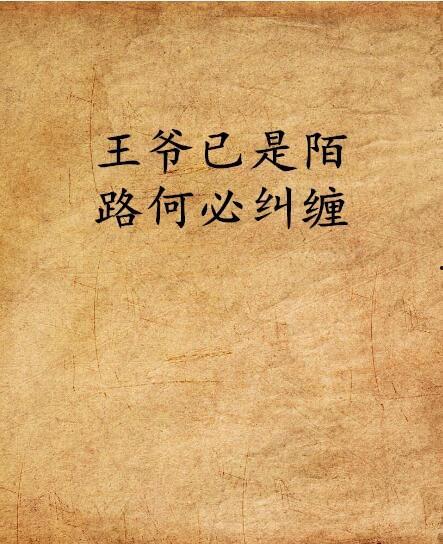 王爷已是陌
路何必纠缠